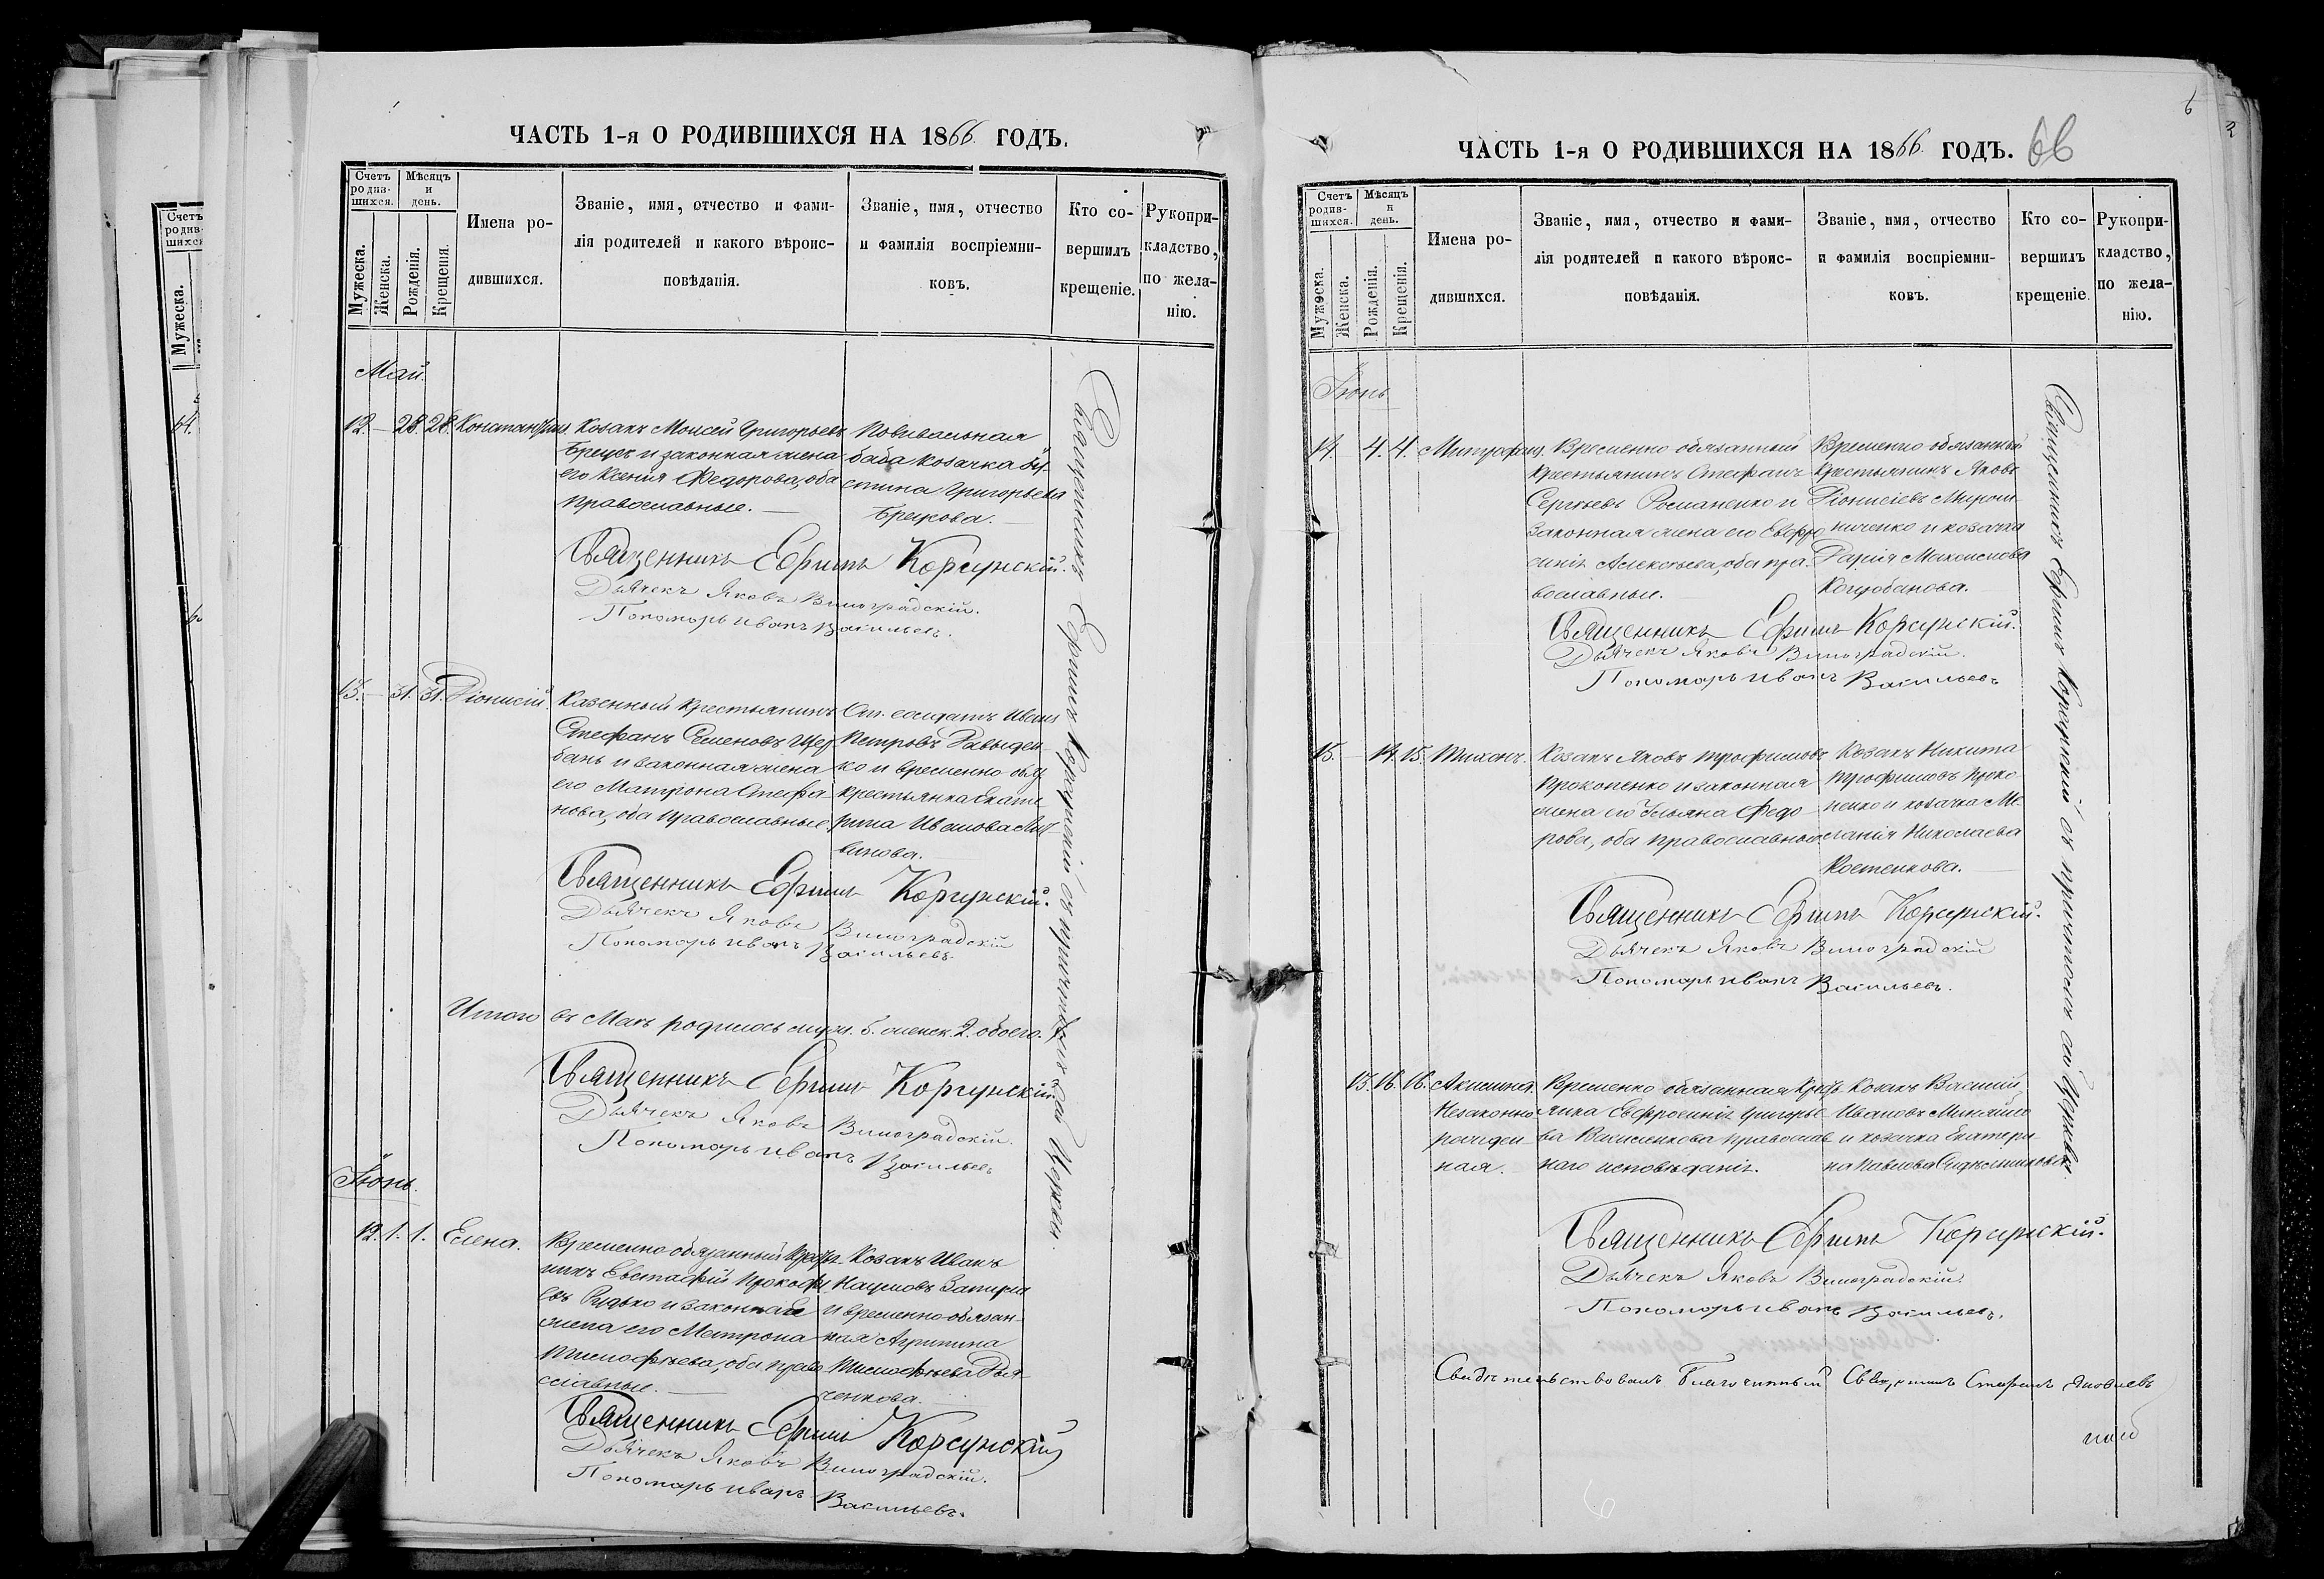 ЧАСТЬ 1-я О РОДИВШИХСЯ НА 1866 ГОДЪ.
Счетъ родив-шихся.
Мѣсяцъ и день.
Мужеска.
Женска.
Рожденія.
Крещенія.
Имена ро-
дившихся.
Званіе, имя, отчество и фами-
лія родителей и какого вѣроис-
повѣданія.
Званіе, имя, отчество
и фамилія воспріемни-
ковъ.
Кто со-
вершилъ
крещеніе.
Рукопри-
кладство,
по жела-
нію.
Май.
12. — 28. 28. Константинъ
Козакъ Моисей Григорьевъ
и законная жена
его Ксенія Федорова, оба
православные. —
Повивальная
баба козачка
Григорьева
Священникъ Ефимъ Корсунскій.
Дьячекъ Яковъ Виноградскій.
Пономарь Иванъ Васильевъ.
13. — 31. 31. Діонисій.
Казенный крестьянинъ
Стефанъ Семеновъ Щер
бань и законная жена
его Матрона Стефа
нова, оба православные.
От. солдатъ Иванъ
Петровъ Давыден
ко и временно обяз
крестьянка Екате
рина Иванова
Священникъ Ефимъ Корсунскій.
Дьячекъ Яковъ Виноградскій
Пономарь Иванъ Васильевъ.
Итого въ Маѣ родилось муж. 5. женск. 2. обоего. 7.
Священникъ Ефимъ Корсунскій
Дьячекъ Яковъ Виноградскій.
Пономарь Иванъ Васильевъ
Іюнь.
12. 1. 1. Елена.
Временно обязанный крест
нинъ Евстафій Прокофі
евъ Рудько и законная
жена его Матрона
Тимофѣева, оба право
славные. —
Козакъ Иванъ
Наумовъ
и временно обязан-
ная Агрипина
Тимофѣева Дья
ченкова. —
Священникъ Ефимъ Корсунскій
Дьячекъ Яковъ Виноградскій.
Пономарь Иванъ Васильевъ.
Священникъ Ефимъ Корсунскій съ причтомъ той Церкви.
ЧАСТЬ 1-я О РОДИВШИХСЯ НА 1866 ГОДЪ.
66
6
Счетъ родив-шихся.
Мѣсяцъ и день.
Мужеска.
Женска.
Рожденія.
Крещенія.
Имена ро-
дившихся.
Званіе, имя, отчество и фами-
лія родителей и какого вѣроис-
повѣданія.
Званіе, имя, отчество
и фамилія воспріемни-
ковъ.
Кто со-
вершилъ
крещеніе.
Рукопри-
кладство,
по жела-
нію.
Іюнь
14. — 4. 4. Митрофанъ.
Временно обязанный
крестьянинъ Стефанъ
Сергѣевъ Романенко и
законная жена его Евфро
синія Алексѣева, оба пра-
вославные. —
Временно обязанный
крестьянинъ Яковъ
Діонисіевъ Мирош
ниченко и козачка
Дарія Максимова
Кочубанова.
Священникъ Ефимъ Корсунскій.
Дьячекъ Яковъ Виноградскій.
Пономарь Иванъ Васильевъ
15. — 14. 15. Тихонъ.
Козакъ Яковъ Трофимовъ
Прокопенко и законная
жена его Ульяна Федо
рова, оба православные.
Козакъ Никита
Трофимовъ Проко
пенко и козачка Ме-
ланія Николаева
Костенкова. —
Священникъ Ефимъ Корсунскій.
Дьячекъ Яковъ Виноградскій
Пономарь Иванъ Васильевъ.
13. 16. 16. Акилина.
Незаконно
рожден
ная.
Временно обязанная крест
янка Евфросинія Григорье
ва православ
наго исповѣданія.
Козакъ Василій
Ивановъ
и козачка Екатери
на Павлова
Священникъ Ефимъ Корсунскій.
Дьячекъ Яковъ Виноградскій.
Пономарь Иванъ Васильевъ.
Свидѣтельствовалъ Благочинный Священникъ Стефанъ
Священникъ Ефимъ Корсунскій съ причтомъ той Церкви.
Счетъ родив-шихся
Мужеска.